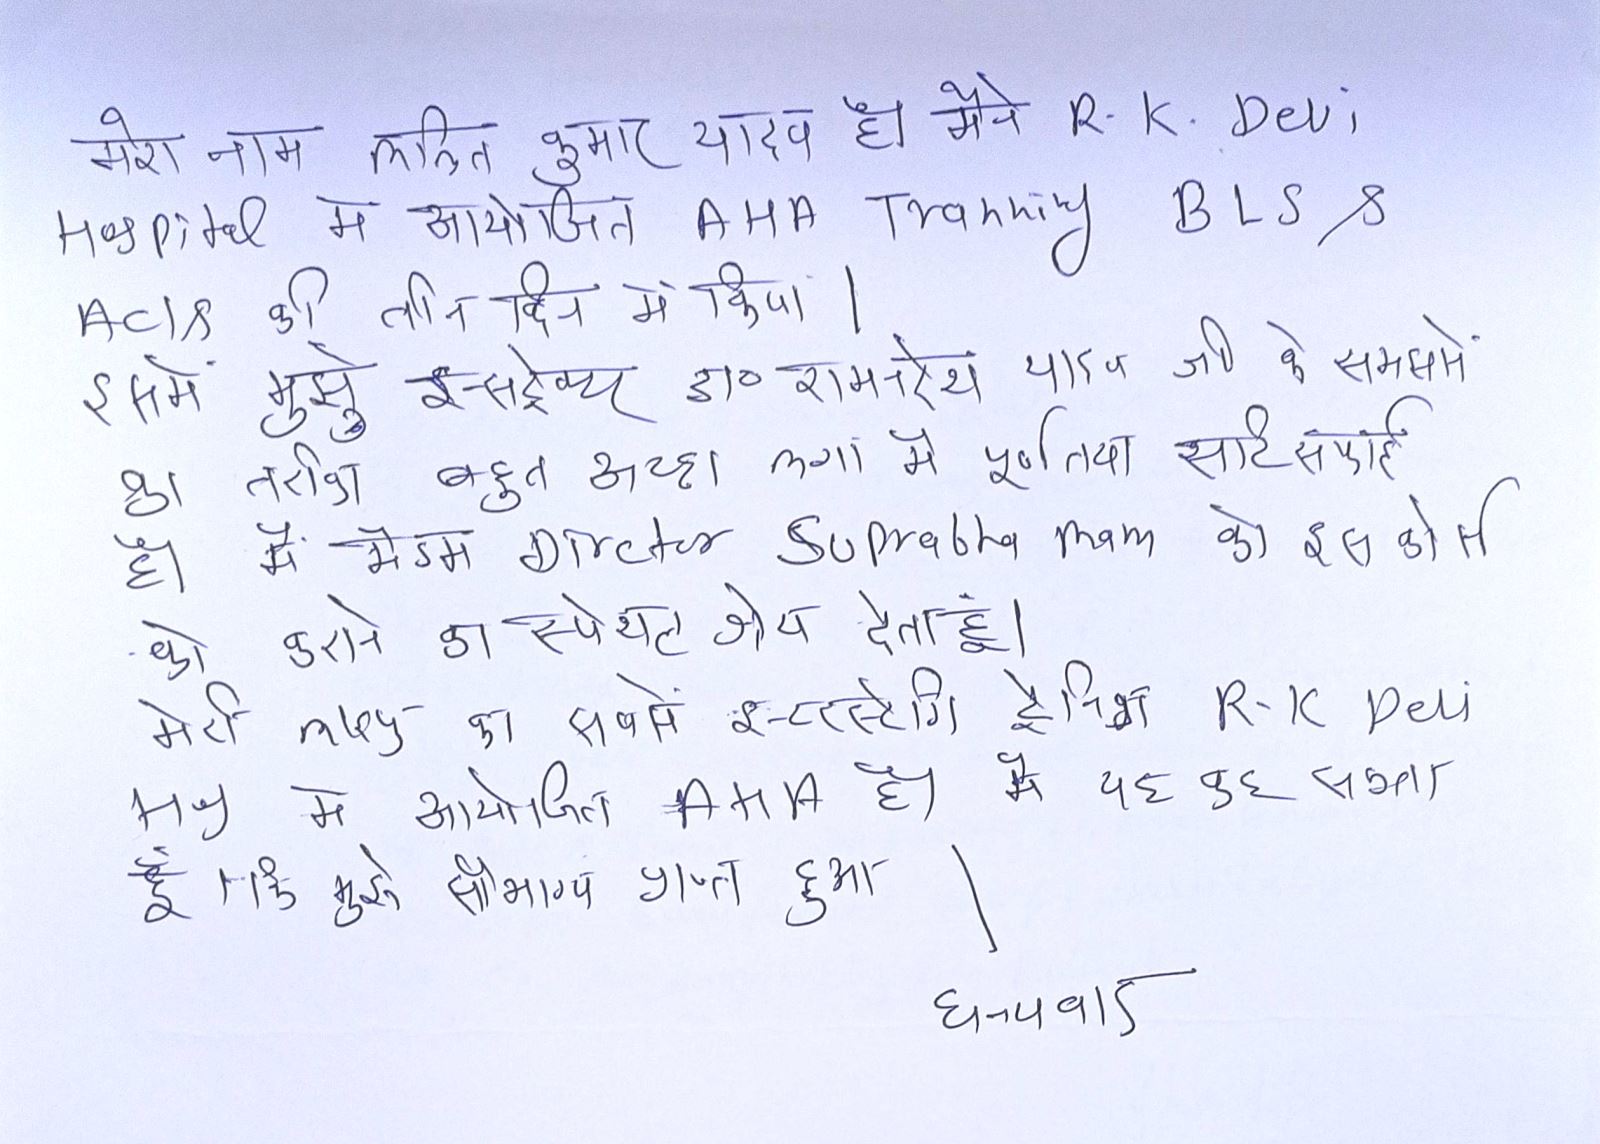 मेरा नाम ललित कुमार यादव है। मैंने R. K. Devi
Hospital में आयोजित AHA Tranning BLS &
ACLS की तीन दिन में किया |
इसमें मुझे इन्सट्रेक्टर डा० रामनरेश यादव जी के समझाने
का तरीका बहुत अच्छा लगा मैं पूर्णतया साटिसफाई
है। मैं मैडम Dirctor Suprabha mam को इस कोर्स
को कराने का स्पेशल श्रेय देता हूँ।
मेरी का सबसे इन्टरस्टेगि ट्रेनिंग R-K Devi
में आयोजित AHA है। मैं यह कह सकता
हूँ कि मुझे सौभाग्य प्राप्त हुआ |
धन्यवाद